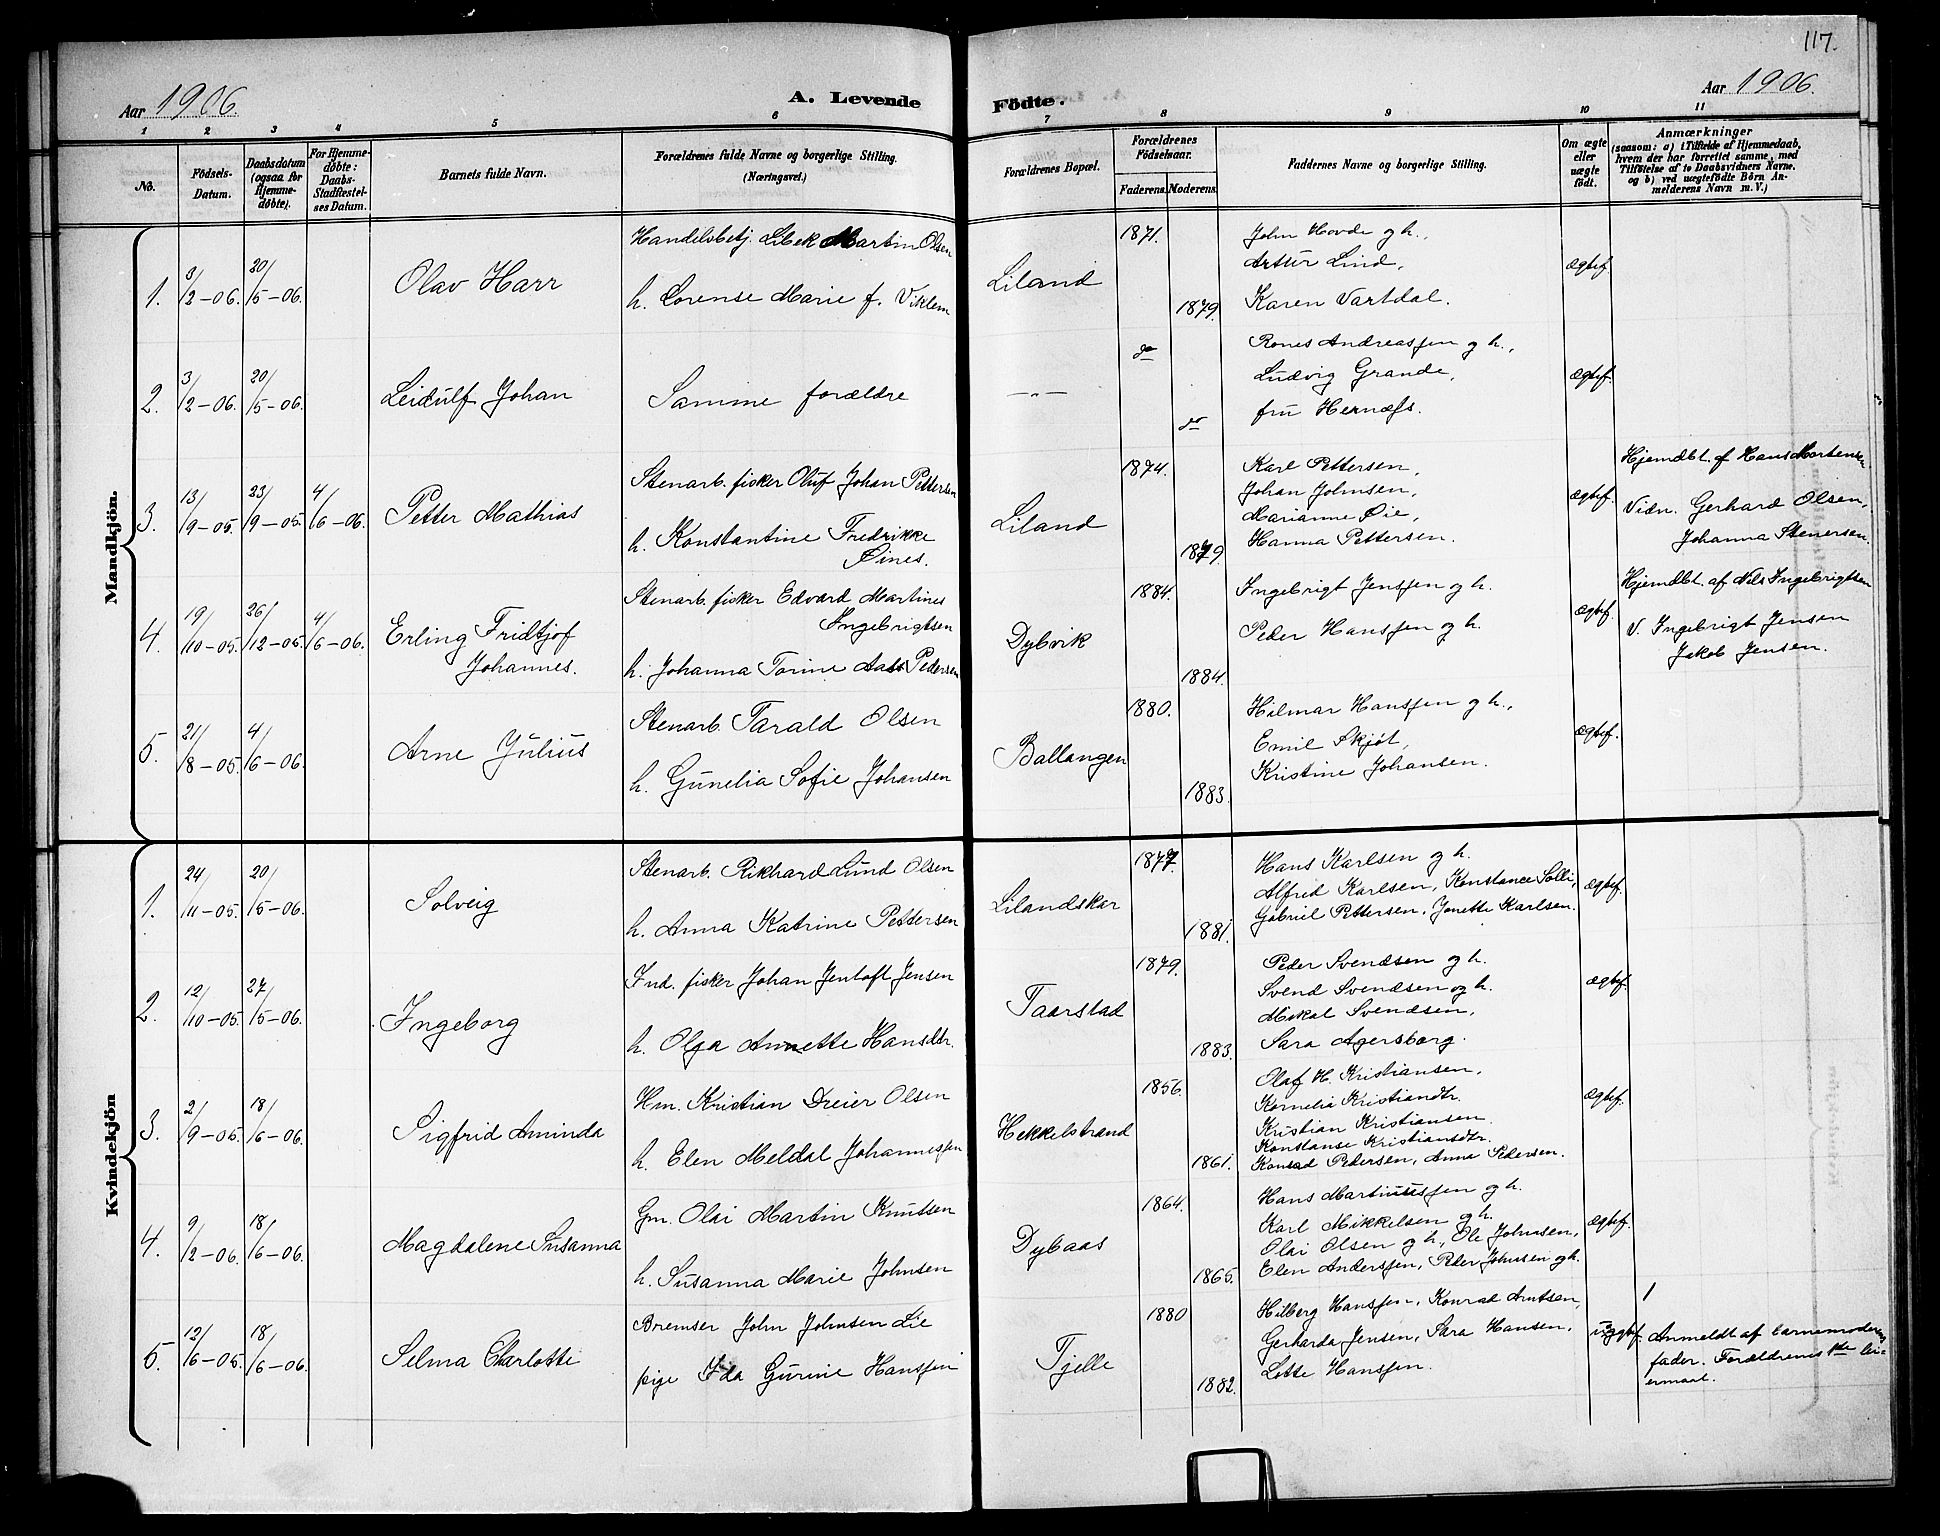 117.
Aar 1906.
A. Levende
Födte.
Aar 1906.
1 2 3 4 5 6 7 8 9 10 11
No.
Födsels-Datum.
Daabsdatum (ogsaa for Hjemme-döbte).
For Hjemme-döbte: Daabs-Stadfæstel-ses Datum.
Barnets fulde Navn.
Forældrenes fulde Navne og borgerlige Stilling.
(Næringsvei.)
Forældrenes Bopæl.
Forældrenes Födselsaar.
Faderens.
Moderens.
Faddernes Navne og borgerlige Stilling.
Om ægte eller uægte födt.
Anmærkninger
(saasom: a) i Tilfælde af Hjemmedaab, hvem der har forrettet samme, med Tilföielse af to Daabsvidners Navne. og b) ved uægtefödte Börn An-melderens Navn m. V.)
Mandkjön.
1. 3/2-06. 20/5-06. Olav Harr
Handelsbetj. Libek Martin Olsen
h. Lorense Marie f. Viklem
Liland
1871.
1879.
John Hovde og h.,
Artur Lind,
Karen Vartdal.
ægtef.
2. 3/2-06. 20/5-06. Leidulf Johan
Samme forældre
—„—
do
do
Rones Andreassen og h.,
Ludvig Grande,
fru Hernæs.
ægtef.
3. 13/9-05. 23/9-05. 4/6-06. Petter Mathias
Stenarb. fisker Oluf Johan Pettersen
h. Konstantine Fredrikke
Øines.
Liland
1874.
1879.
Karl Pettersen,
Johan Johnsen,
Marianne Øie,
Hanna Pettersen.
ægtef.
Hjemdbt. af Hans Mortensen
Vidn. Gerhard Olsen,
Johanna Stenersen.
4. 19/10-05. 26/12-05. 4/6-06. Erling Fridtjof
Johannes.
Stenarb. fisker Edvard Martines
Ingebrigtsen
h. Johanna Torine Aass Pedersen
Dybvik
1884.
1884.
Ingebrigt Jenssen og h.
Peder Hanssen og h.
ægtef.
Hjemdbt. af Nils Ingebrigtsen
V. Ingebrigt Jensen
Jakob Jensen.
5. 21/8-05. 4/6-06. Arne Julius
Stenarb. Tarald Olsen
h. Gunelia Sofie Johansen
Ballangen
1880.
1883.
Hilmar Hanssen og h.,
Emil Skjöt,
Kristine Johansen.
ægtef.
Kvindekjön
1. 24/11-05. 20/5-06. Solveig
Stenarb. Rikhard Lund Olsen
h. Anna Katrine Pettersen
Lilandskar
1877.
1881.
Hans Karlsen og h.
Alfred Karlsen, Konstance Solli,
Gabriel Pettersen, Jonette Karlsen.
ægtef.
2. 12/10-05. 27/5-06. Ingeborg
Ind. fisker Johan Jentoft Jensen
h. Olga Annette Hansdtr.
Taarstad
1879.
1883.
Peder Svendsen og h.
Svend Svendsen og h.
Mikal Svendsen,
Sara Agersborg.
ægtef.
3. 2/9-05. 18/6-06. Sigfrid Aminda
Hm. Kristian Dreier Olsen
h. Elen Meldal Johannessen
Hekkelstrand
1856.
1861.
Olaf H. Kristiansen,
Kornelia Kristiandtr.
Kristian Kristiansen.
Konstanse Kristiansdtr.
Konrad Pedersen, Anna Pedersen.
ægtef.
4. 9/2-06. 18/6-06. Magdalene Susanna
Gm. Olai Martin Knutsen
h. Susanna Marie Johnsen
Dybaas
1864.
1865.
Hans Martinussen og h.
Karl Mikkelsen og h.
Olai Olsen og h., Ole Johnsen,
Elen Anderssen, Peder Johnsen og h.
ægtef.
5. 12/6-05. 18/6-06. Selma Charlotte
Bremser John Johnsen Lie
pige Ida Gurine Hanssen
Tjelle
1880
1882.
Hilberg Hanssen, Konrad Arntsen,
Gerharda Jensen, Sara Hansen,
Lotte Hanssen.
uægtef.
Anmeldt af barnemoderens
fader. Forældrenes 1ste lei-
ermaal.